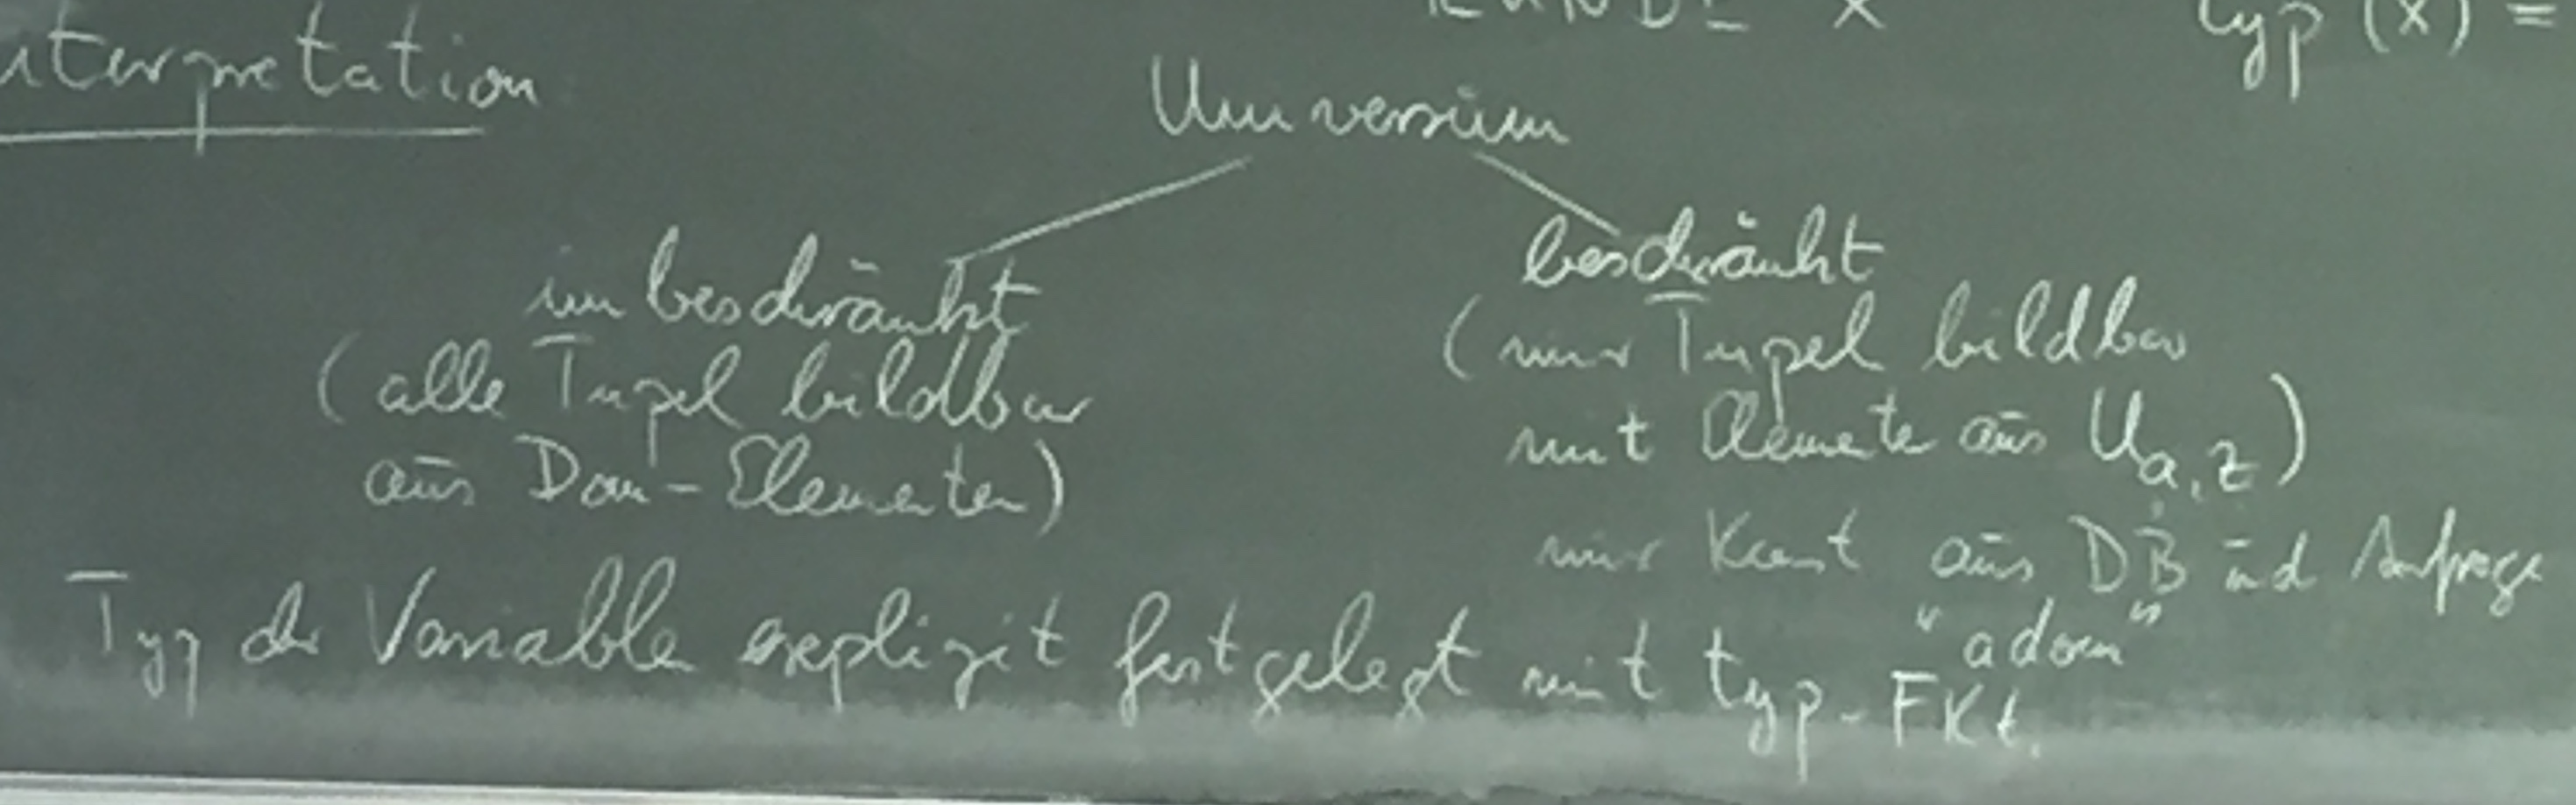 KUNDE x typ(x) =
nterpretation
Universum
unbeschränkt
(alle Tupel bildbar
aus Dom-Elementen)
beschränkt
(nur Tupel bildbar
mit Elemente aus U a,z)
nur Kont aus DB und Anfrage
"adom"
Typ der Variable explizit festgelegt mit typ-FKt.